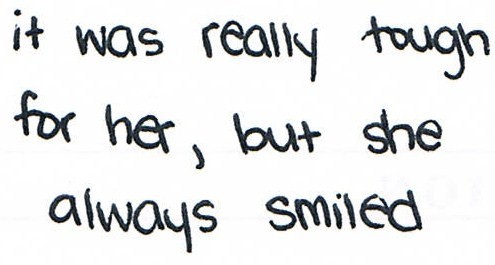 it was really tough
for her, but she
always smiled